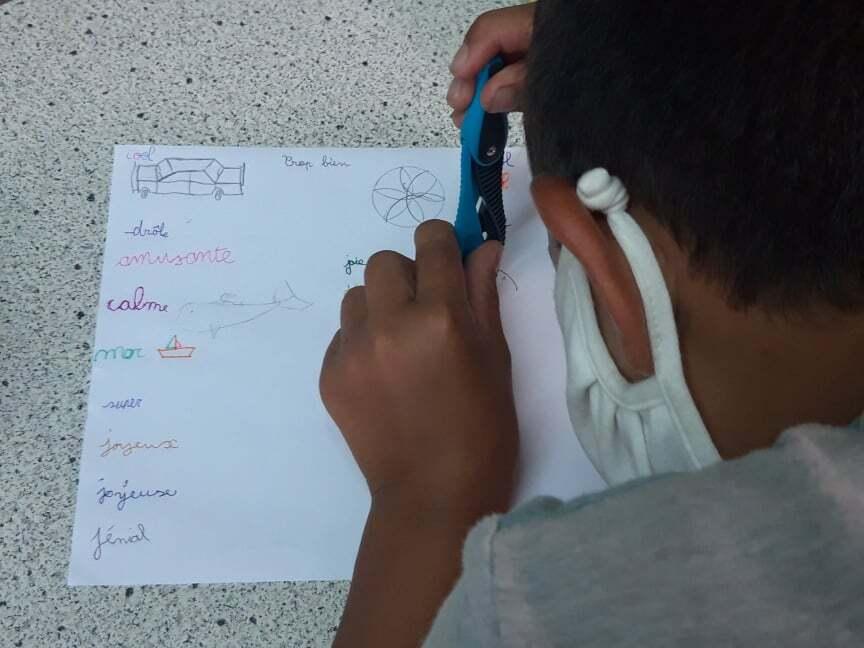 cool
Trop bien
drôle
amusante
joie
calme
mer
super
joyeux
joyeuse
génial